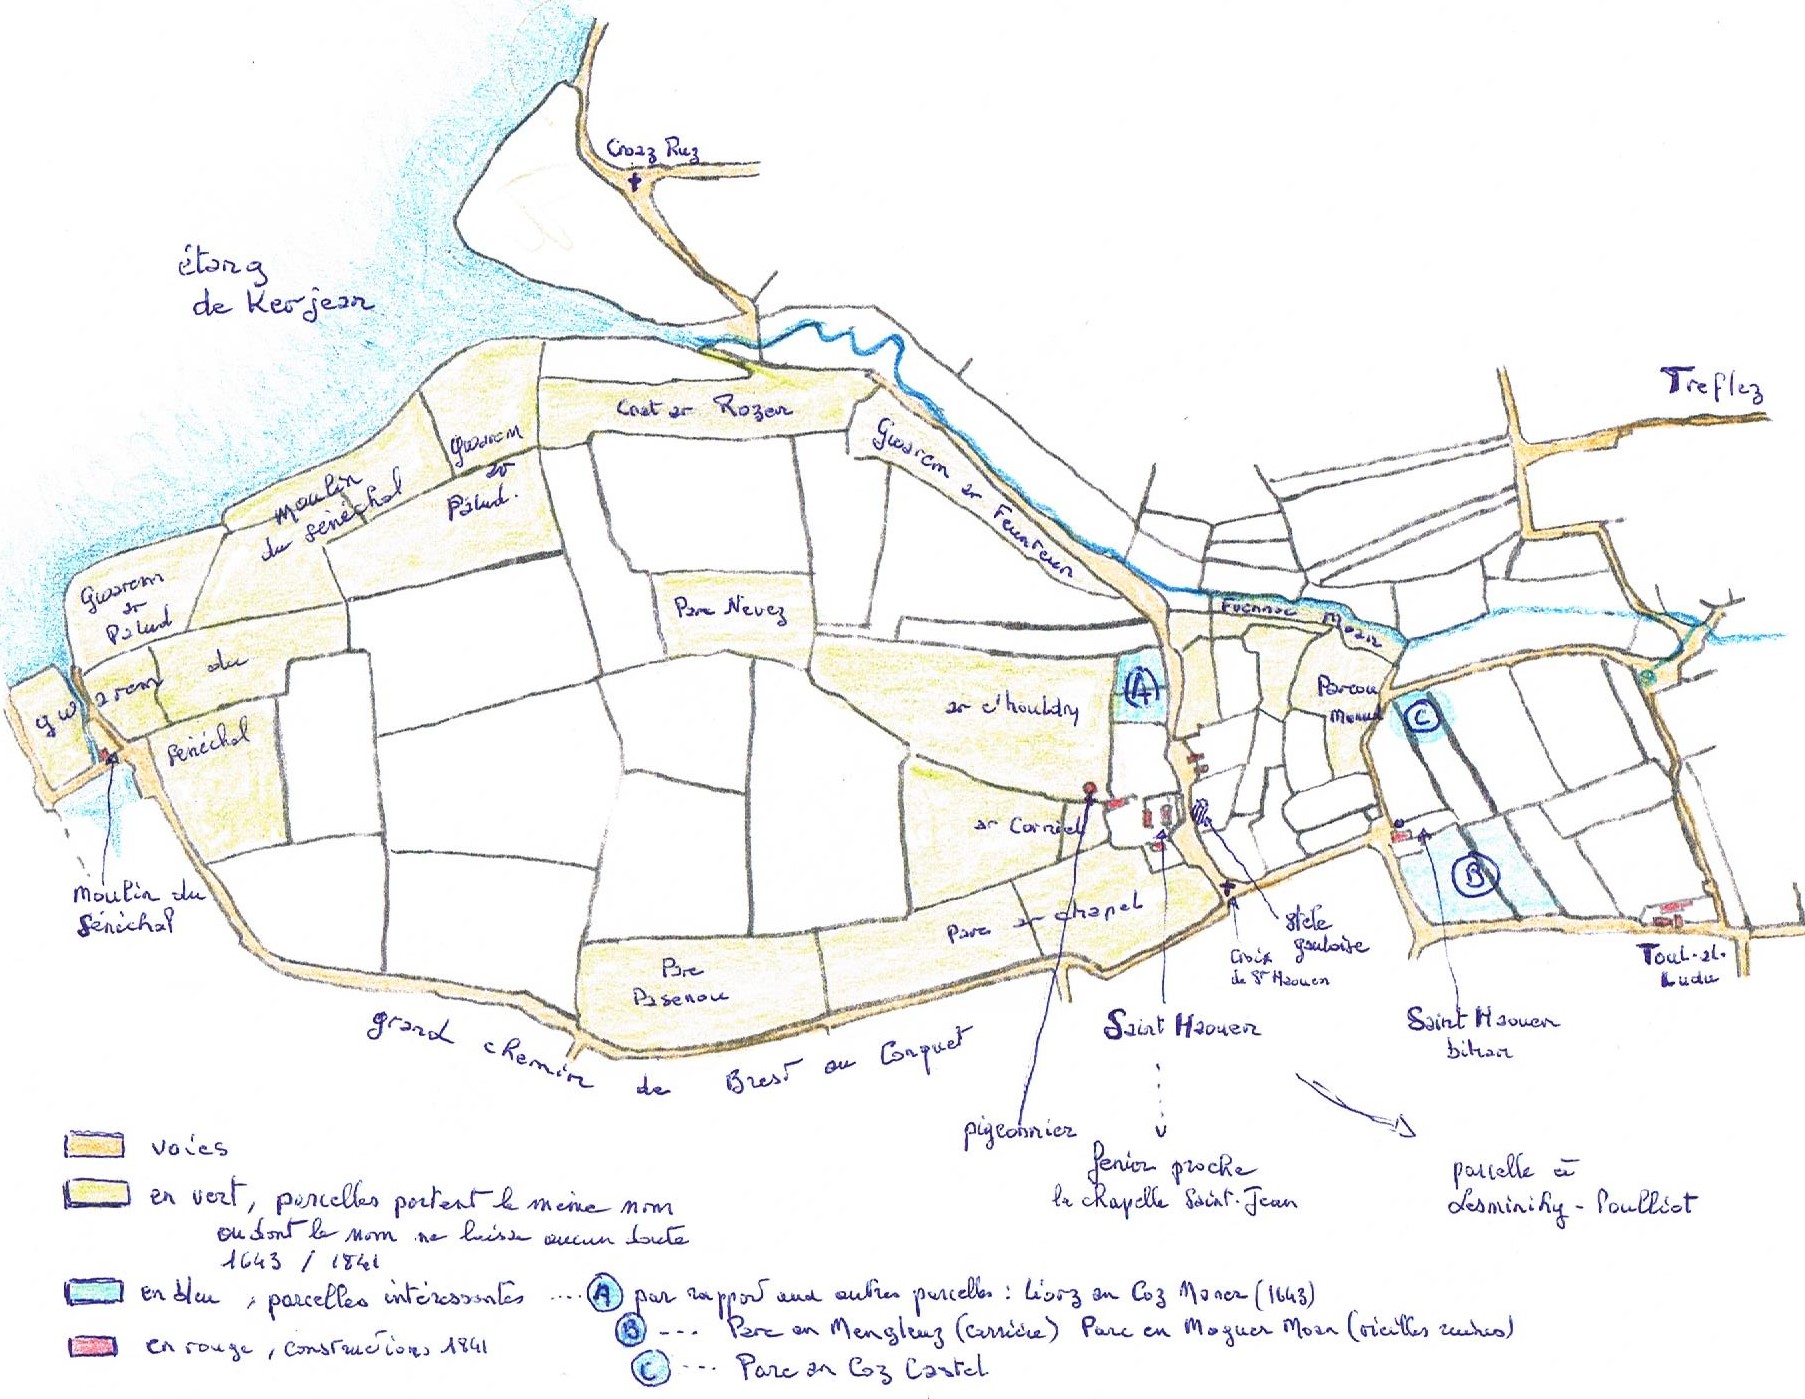 Croaz Ruz
étang
de Kerjean
Treflez
Coat ar Rozen
Gwarem
ar
Palud.
Gwarem ar Feunteun
moulin
du Sénéchal
Gwarem
ar
Palud
Parc Nevez
Foennoc Moan
Parcou
Menud
gwarem du
Sénéchal
ar c'houldry
A
C
ar Corniel
B
moulin du
Sénéchal
Parc ar chapel
stele
gauloise
Croix
de St Haouen
Toul-al-
Ludu
Parc
Pasenou
grand chemin de Brest au Conquet
Saint Haouen
Saint Haouen
bihan
pigeonnier
proche
la chapelle Saint-Jean
parcelle à
Lesminihy-Poulliot
voies
en vert, parcelles portant le même nom
ou dont le nom ne laisse aucun doute
1643 / 1841
en bleu, parcelles intéressantes .... A par rapport aux autres parcelles : Liorz an Coz Maner (1643)
B --- Parc an Mengleuz (carrière) Parc en Moguer Moan (vieilles ruines)
en rouge, constructions 1841
C --- Parc an Coz Castel